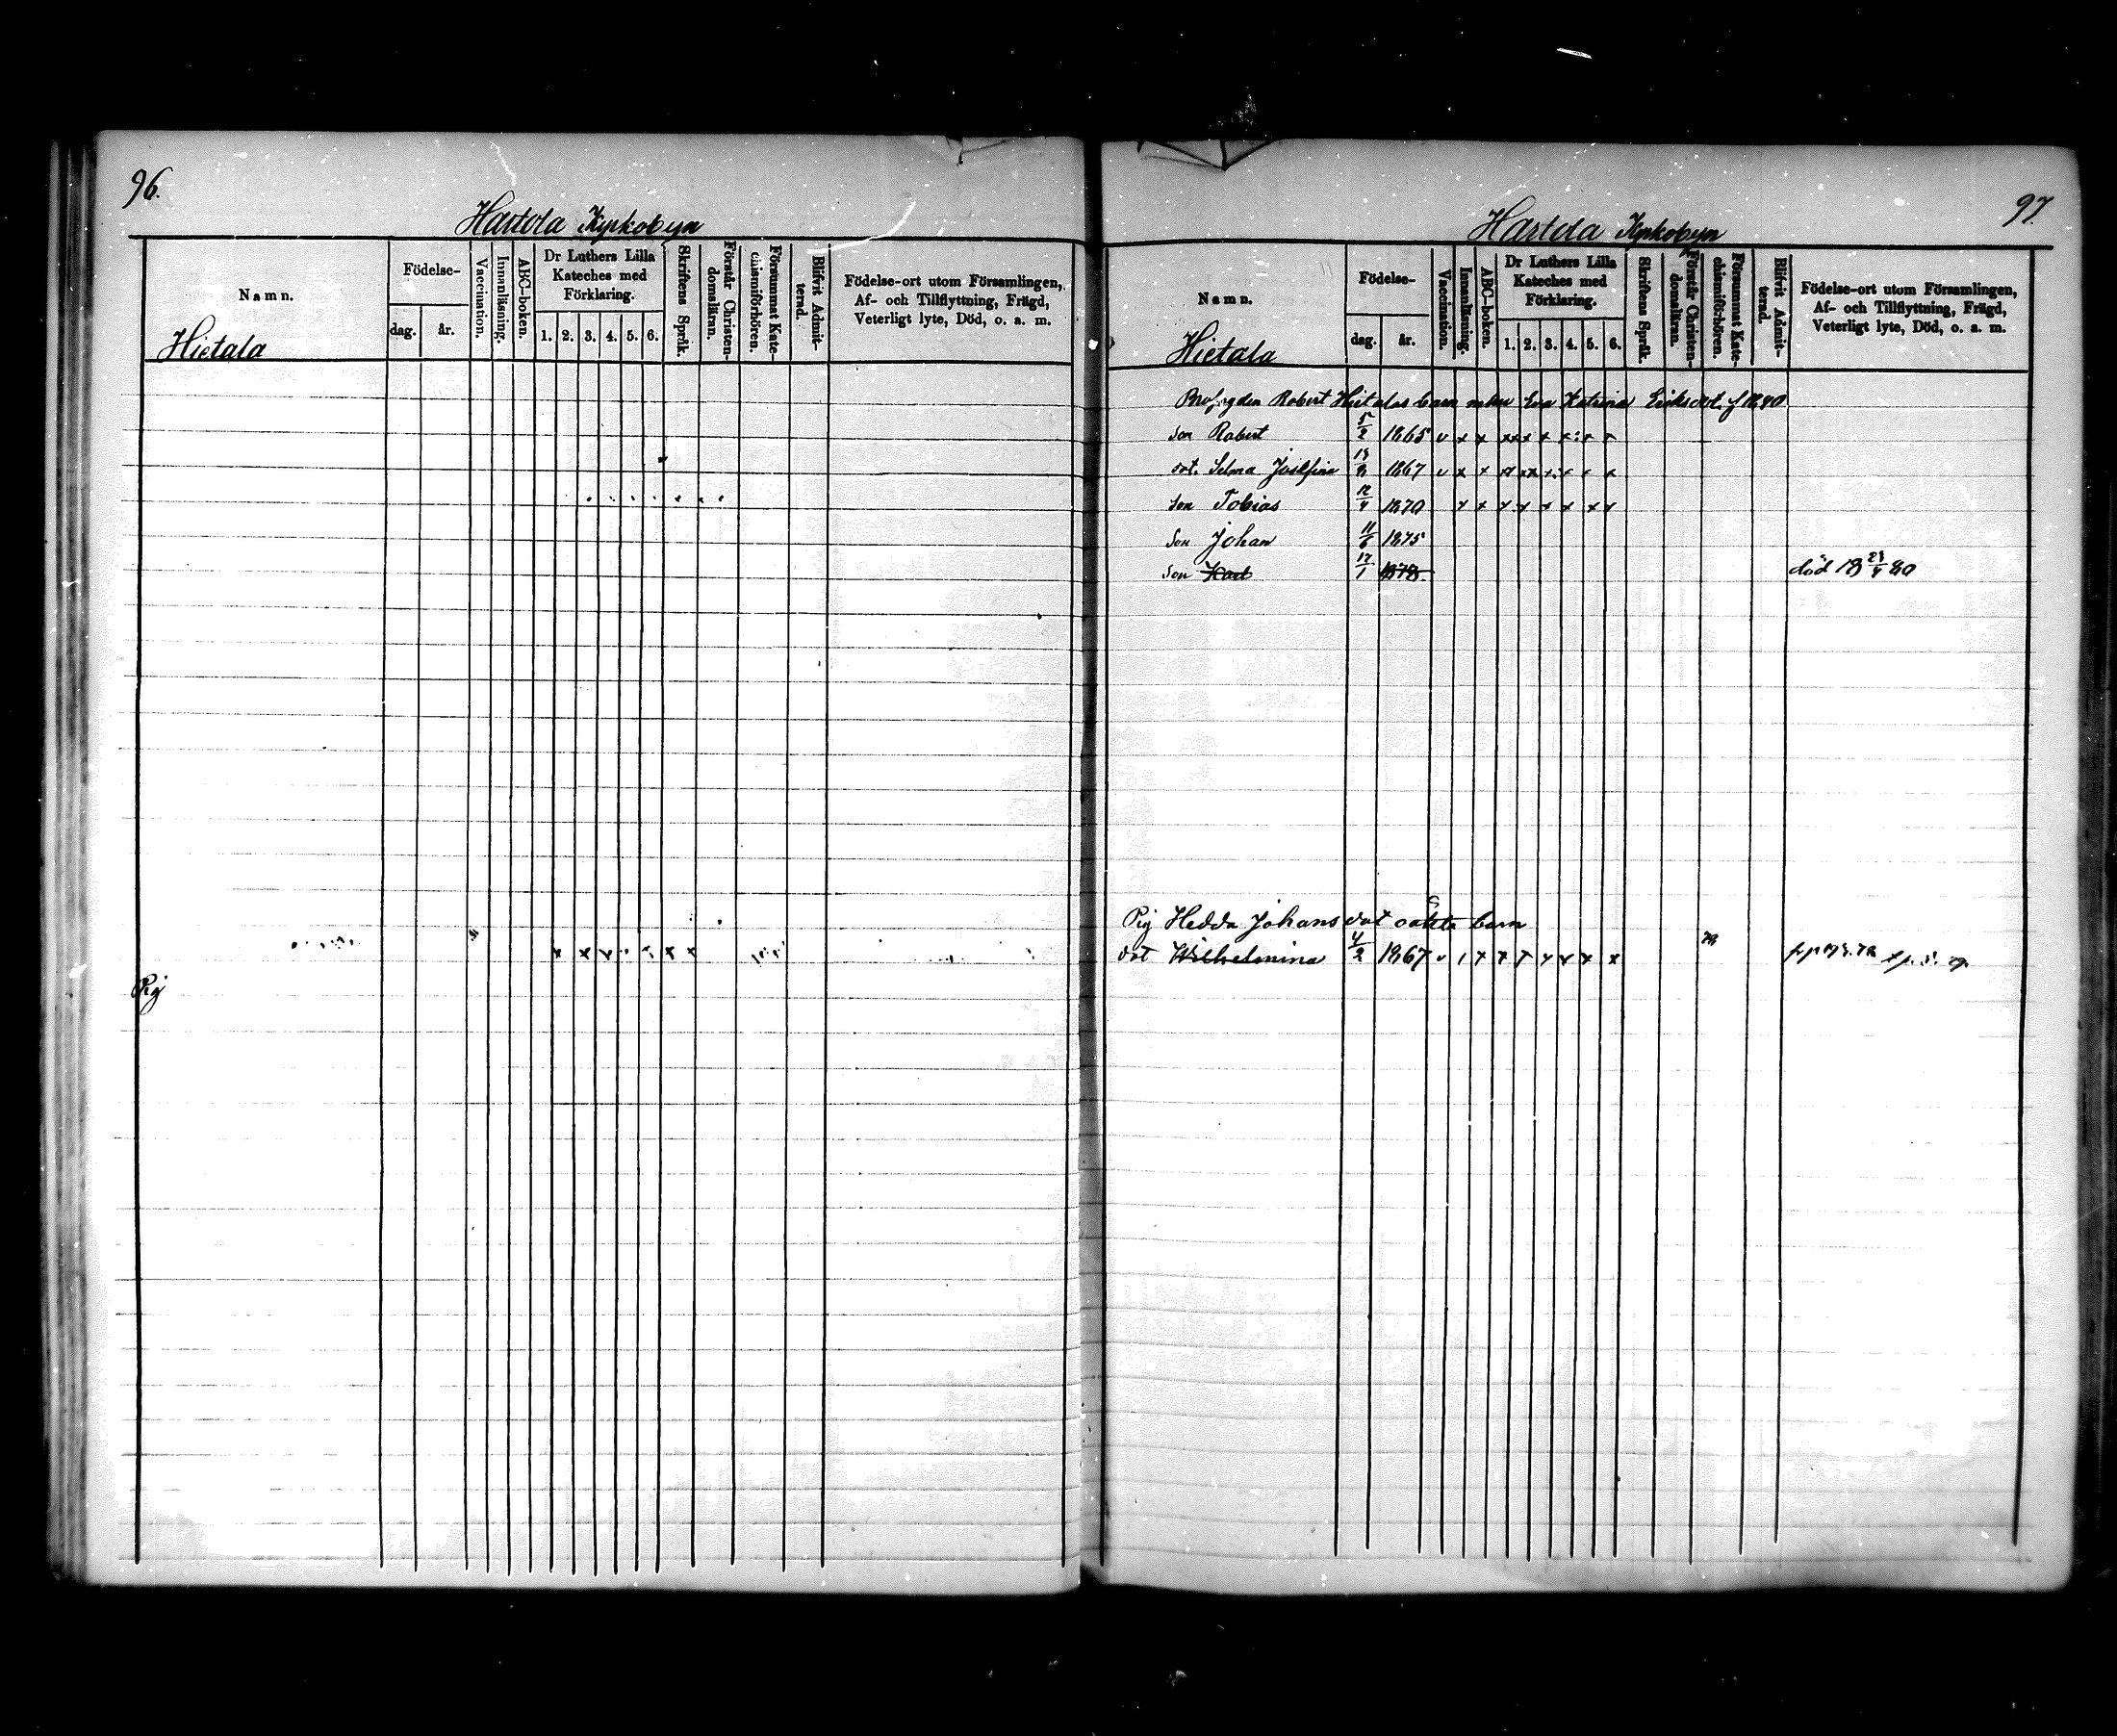 96.
Hartola Kyrkobyn
Namn.
Födelse-
dag.
år.
Vaccination.
Innanläsning.
ABC-boken.
Dr Luthers Lilla
Kateches med
Förklaring.
1. 2. 3. 4. 5. 6.
Skriftens Språk.
Förstår Christen-
domsläran.
Försummat Kate-
chismiförhören.
Blifvit Admit-
terad.
Födelse-ort utom Församlingen,
Af- och Tillflyttning, Frägd,
Veterligt lyte, Död, o. a. m.
Hietala
Pig
97.
Hartola Kyrkobyn
Namn.
Födelse-
dag.
år.
Vaccination.
Innanläsning.
ABC-boken.
Dr Luthers Lilla
Kateches med
Förklaring.
1. 2. 3. 4. 5. 6.
Skriftens Språk.
Förstår Christen-
domsläran.
Försummat Kate-
chismiförhören.
Blifvit Admit-
terad.
Födelse-ort utom Församlingen,
Af- och Tillflyttning, Frägd,
Veterligt lyte, Död, o. a. m.
Hietala
Robert Hietalas barn Eva Katrina Eriksdot. f 1840
Son Robert 5/2 1865 v x x x x x x x x x
dot. Selma Josefina 1867 v x x x x x x x x
Son Tobias 12/4 1870 x x x x x x x x
Son Johan 11/6 1875
Son Karl 17/1 1878. död 18 /4 80
Pig Hedda Johansdot oäkta barn
dot Wilhelmina 4/2 1867 v x x x x x x x x